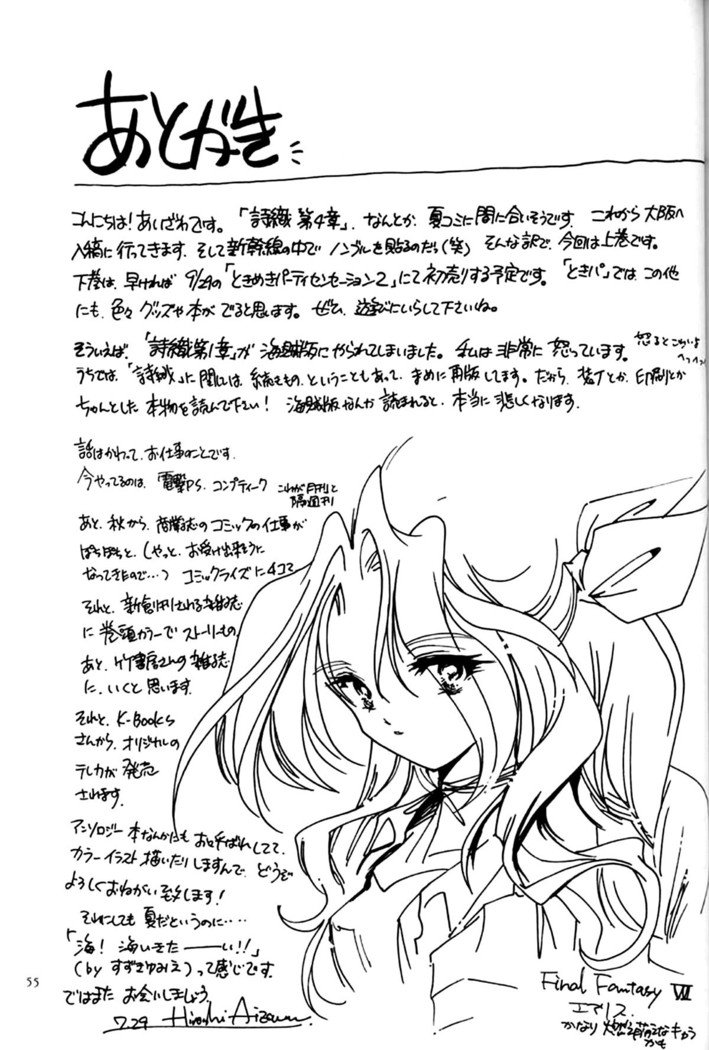 あとがき
こんにちは！あいざわです。「詩織 第4章」、なんとか、夏コミに間に合いそうです。これから大阪へ
入稿に行ってきます。そして新幹線の中でノンブルを貼るのだ（笑）そんな訳で、今回は上巻です。
下巻は、早ければ 9/29の「ときめきパーティセンセーション2」にて初売りする予定です。「ときパ」では、この他
にも、色々グッズや本がでると思います。ぜひ、遊びにいらして下さいね。
そういえば、「詩織第1章」が海賊版にやられてしまいました。私は非常に怒っています。
怒るとこわいよ
うちでは、「詩織」に関しては、続きもの、ということもあって、まめに再版してます。だから、装丁とか、印刷とか
ちゃんとした本物を読んで下さい！海賊版なんか読まれると、本当に悲しくなります。
話はかわって、お仕事のことです。
今やってるのは、電撃PS、コンプティーク
これが月刊と
隔週刊
あと、秋から、商業誌のコミックの仕事が
ぽちぽちと、（やっと、お受け出来るように
なってきたので…）コミックライズに4コマ
それと、新創刊される雑誌
に巻頭カラーでストーリーもの、
あと、竹書房さんの雑誌
に、いくと思います。
それと、K-Books
さんから、オリジナルの
テレカが発売
されます。
アンソロジー本なんかにもお呼ばれしてて、
カラーイラスト描いたりしますんで、どうぞ
よろしくおねがい致します！
それにしても夏だというのに‥‥
「海！海いきたーーい!!」
（by すずきゆみえ）って感じです。
ではまた お会いしましょう。
7.29 Hiroshi Aizawa.
Final Fantasy VII
エアリス
かなり 燃え萌えなキャラ
かも
55